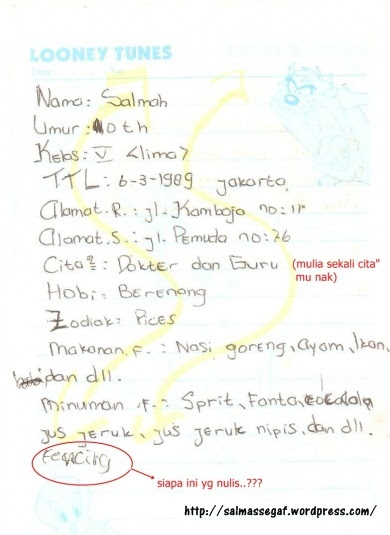 LOONEY TUNES
Nama: Salmah
Umur: 10 th
Kelas: V <lima>
TTL: 6-3-1989 jakarta,
Alamat.R.: jl. Kamboja no: 11
Alamat.S.: jl. Pemuda no: 76
Cita²: Dokter dan Guru (mulia sekali cita"
mu nak)
Hobi: Berenang
Zodiak: Pices
Makanan.F.: Nasi goreng, Ayam, Ikan,
dan dll.
Minuman.F.: Sprit, Fanta, cocalola
jus jeruk, jus jeruk nipis, dan dll.
siapa ini yg nulis..???
http://salmassegaf.wordpress.com/